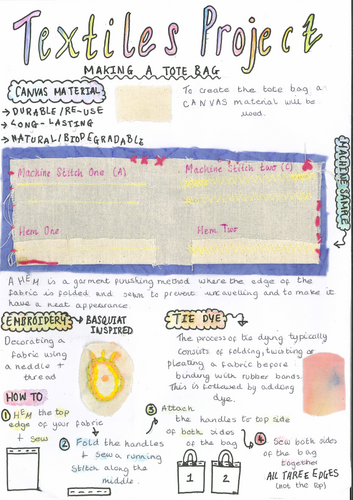 Textiles Project
MAKING A TOTE BAG
CANVAS MATERIAL
→ DURABLE/RE-USE
→ LONG-LASTING
→ NATURAL/BIODEGRADABLE
To create the tote bag a
CANVAS material will be
used.
MACHINE SAMPLES
Machine Stitch One (A)
Machine Stitch two (C)
Hem One
Hem Two
A HEM is a garment finishing method where the edge of the
fabric is folded and sewn to prevent unravelling and to make it
have a neat appearance.
EMBROIDERY
→ BASQUIAT
INSPIRED
Decorating a
fabric using
a needle +
thread
TIE DYE
The process of tie dying typically
consists of folding, twisting or
pleating a fabric before
binding with rubber bands.
This is followed by adding
dye.
HOW TO
1 HEM the top
edge of your fabric
+ sew
2 Fold the handles
+ sew a running
stitch along the
middle.
3 Attach
the handles to top side
of both sides
of the bag
1 2
4 Sew both sides
of the bag
together
ALL THREE EDGES
(not the top)